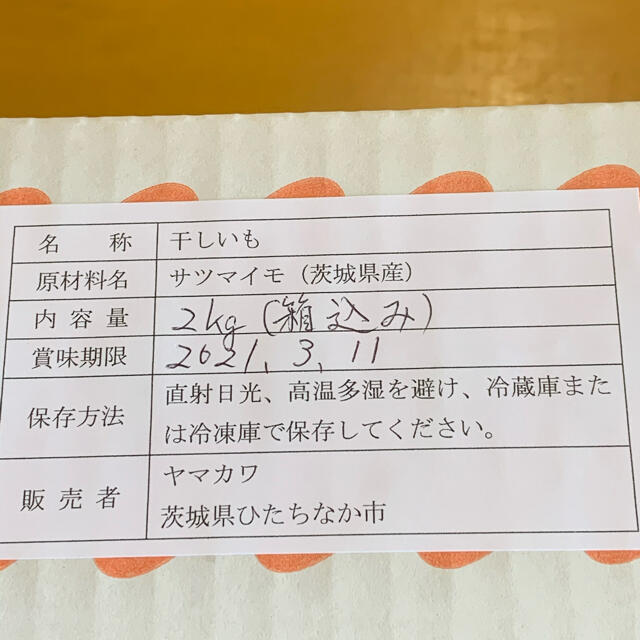 名 称 干しいも
原材料名 サツマイモ（茨城県産）
内 容 量 2kg（箱込み）
賞味期限 2021. 3. 11
保存方法 直射日光、高温多湿を避け、冷蔵庫また
は冷凍庫で保存してください。
販 売 者 ヤマカワ
茨城県ひたちなか市